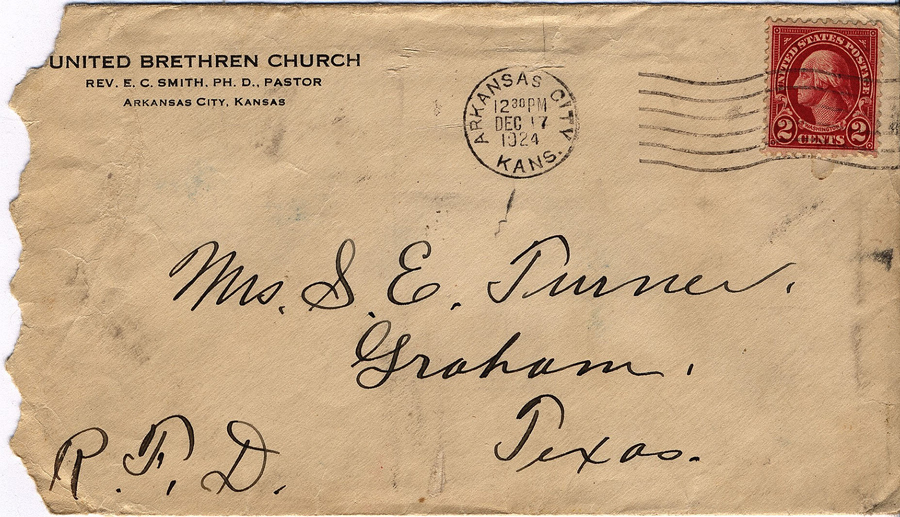 UNITED BRETHREN CHURCH
REV. E. C. SMITH, PH. D., PASTOR
ARKANSAS CITY, KANSAS
ARKANSAS CITY
12 30 PM
DEC 17
1924
KANS.
UNITED STATES POSTAGE
WASHINGTON
2 CENTS 2
Mrs. S. E. Turner.
Graham.
Texas.
R. F. D.